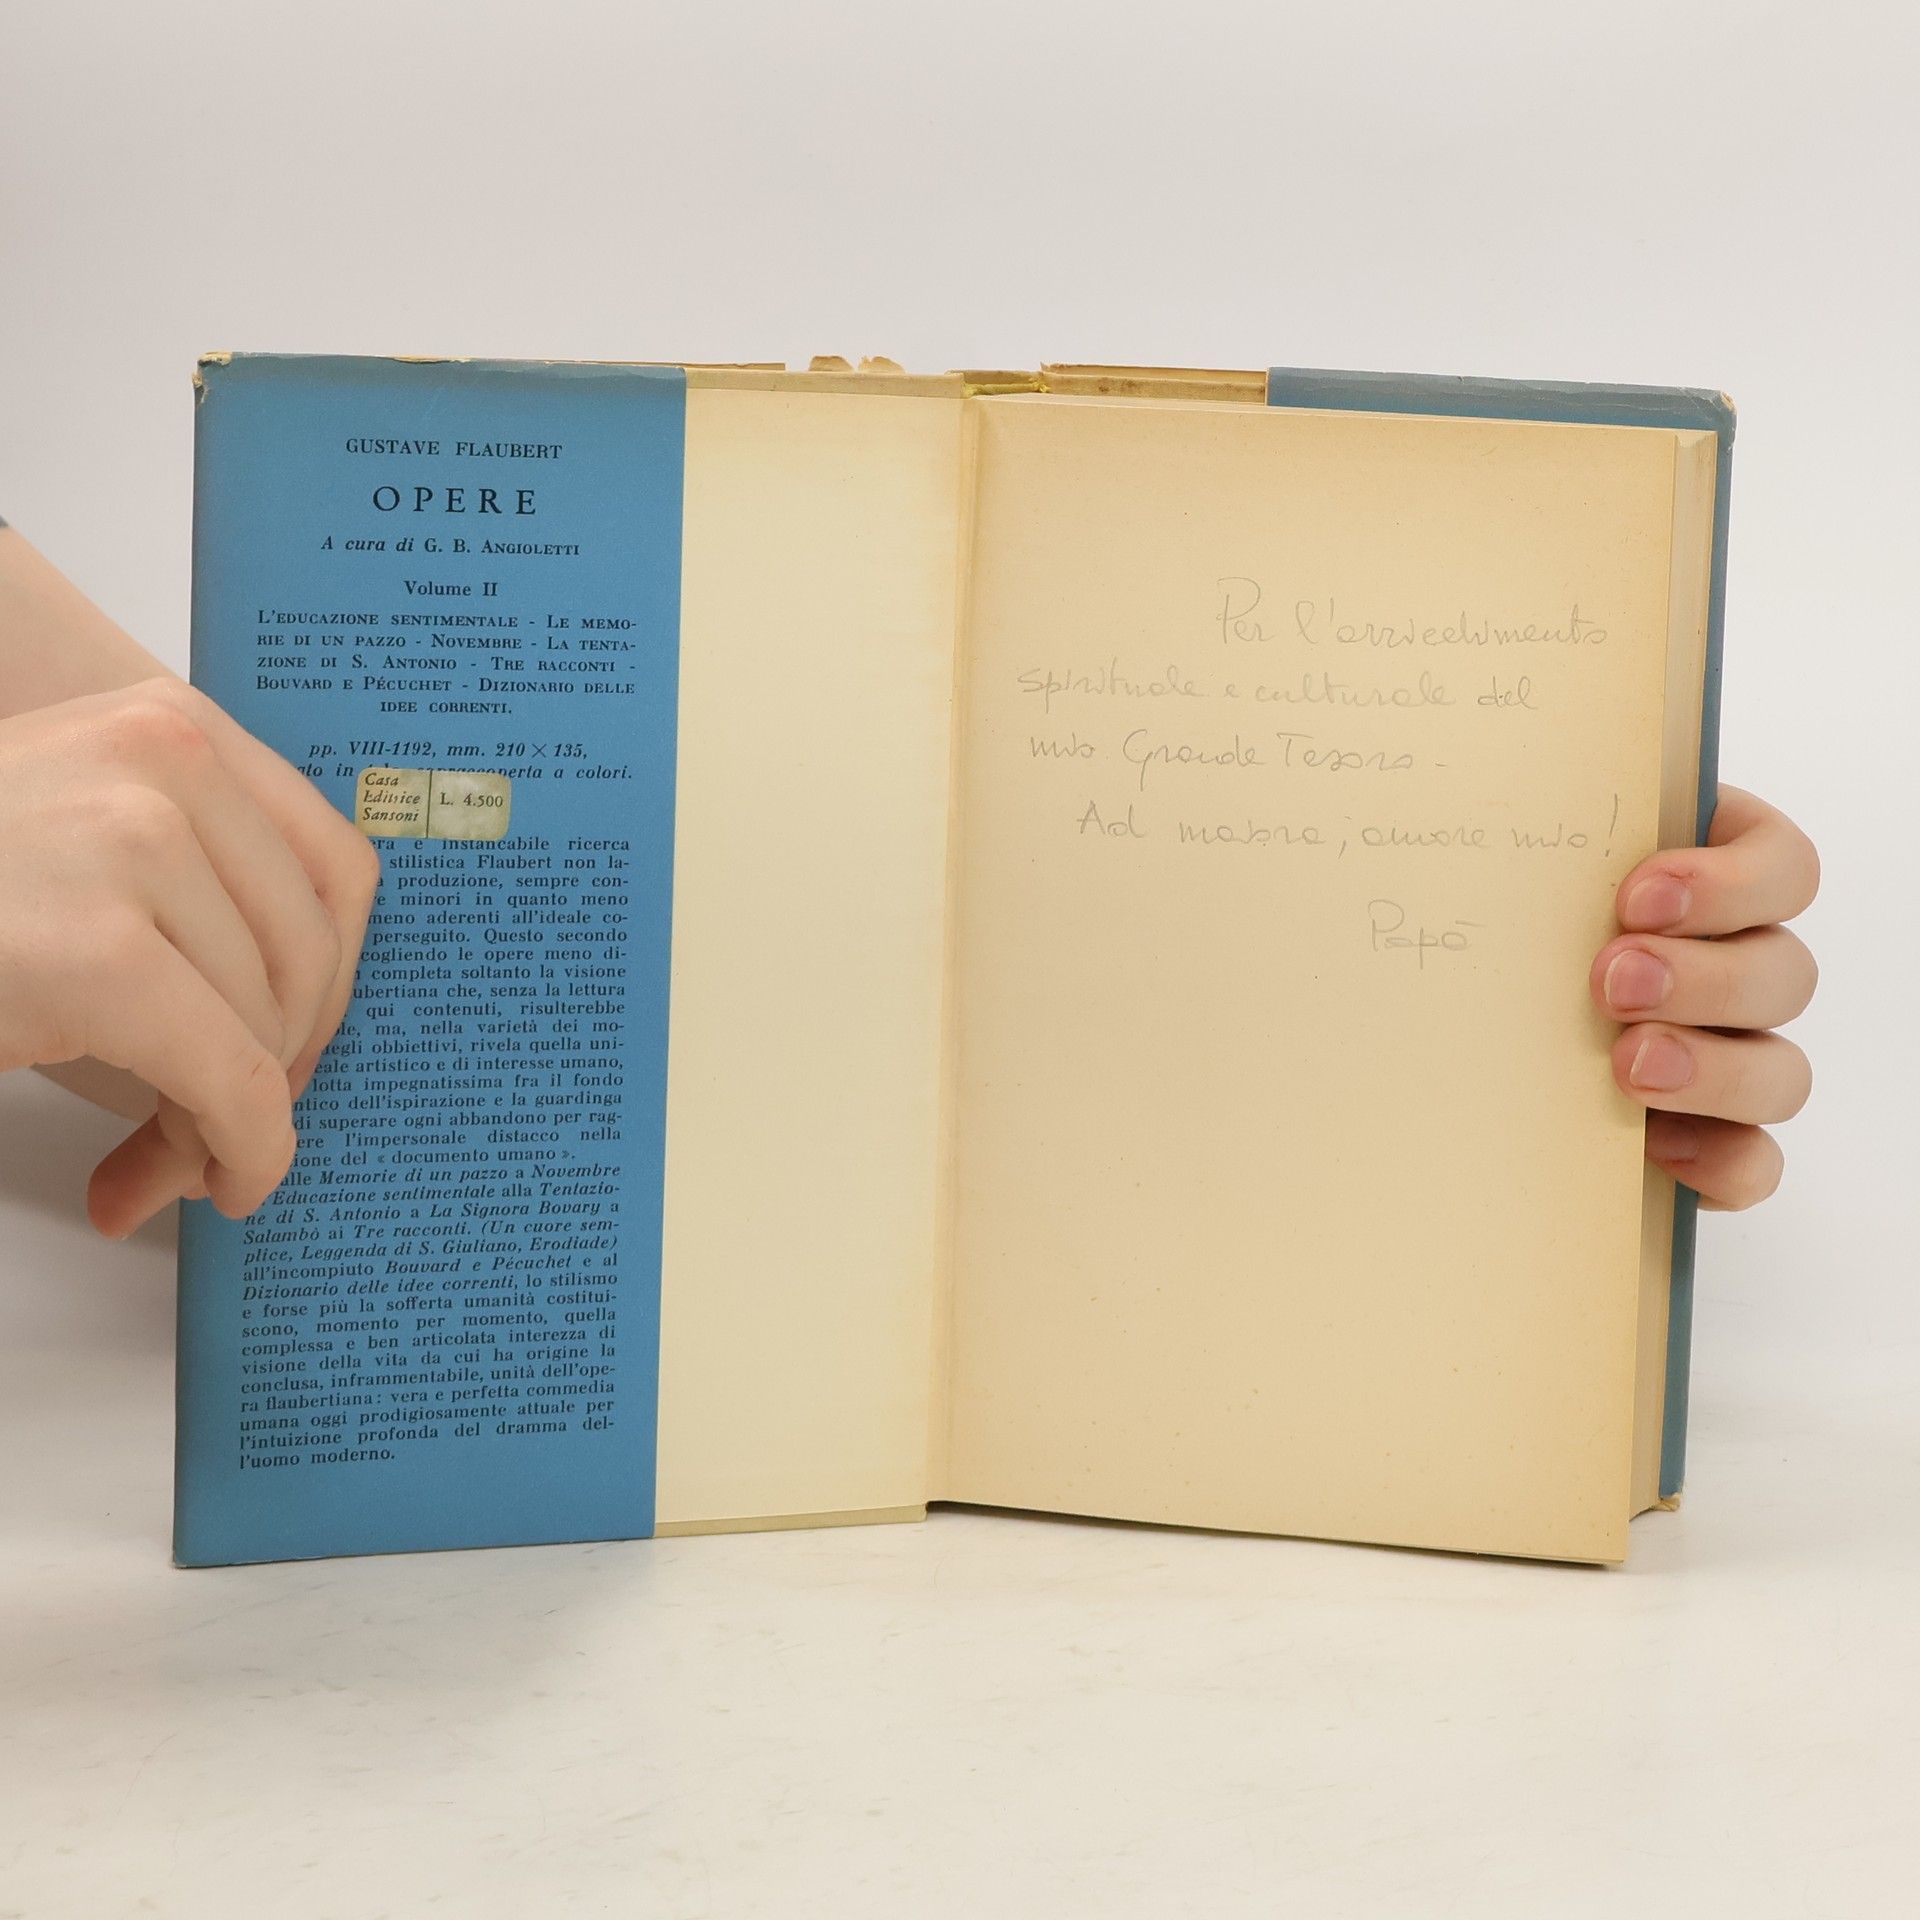 GUSTAVE FLAUBERT
OPERE
A cura di G. B. ANGIOLETTI
Volume II
L'EDUCAZIONE SENTIMENTALE - LE MEMO-
RIE DI UN PAZZO - NOVEMBRE - LA TENTA-
ZIONE DI S. ANTONIO - TRE RACCONTI -
BOUVARD E PÉCUCHET - DIZIONARIO DELLE
IDEE CORRENTI.
pp. VIII-1192, mm. 210 × 135,
in sopraccoperta a colori.
Casa
Editrice
Sansoni
L. 4.500
e instancabile ricerca
stilistica Flaubert non la-
produzione, sempre con-
minori in quanto meno
meno aderenti all'ideale co-
perseguito. Questo secondo
di-
completa soltanto la visione
che, senza la lettura
qui contenuti, risulterebbe
ma, nella varietà dei mo-
obbiettivi, rivela quella uni-
artistico e di interesse umano,
lotta impegnatissima fra il fondo
dell'ispirazione e la guardinga
di superare ogni abbandono per rag-
l'impersonale distacco nella
del « documento umano ».
Memorie di un pazzo a Novembre
Educazione sentimentale alla Tentazio-
ne di S. Antonio a La Signora Bovary a
Salambò ai Tre racconti. (Un cuore sem-
plice, Leggenda di S. Giuliano, Erodiade)
all'incompiuto Bouvard e Pécuchet e al
Dizionario delle idee correnti, lo stilismo
e forse più la sofferta umanità costitui-
scono, momento per momento, quella
complessa e ben articolata interezza di
visione della vita da cui ha origine la
conclusa, inframmentabile, unità dell'ope-
ra flaubertiana: vera e perfetta commedia
umana oggi prodigiosamente attuale per
l'intuizione profonda del dramma del-
l'uomo moderno.
Per l'arricchimento
spirituale e culturale del
mio Grande Tesoro -
Ad maiora, amore mio!
Papà